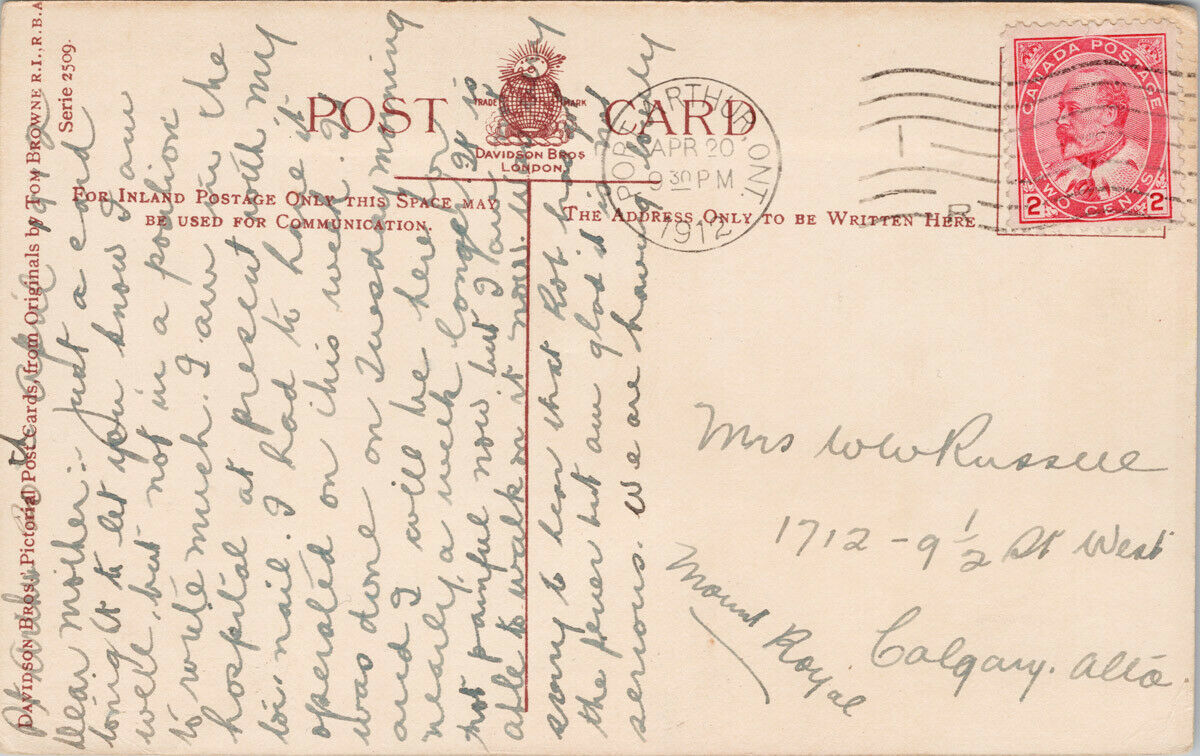 POST CARD
TRADE MARK
DAVIDSON BROS
LONDON.
FOR INLAND POSTAGE ONLY THIS SPACE MAY
BE USED FOR COMMUNICATION.
THE ADDRESS ONLY TO BE WRITTEN HERE
DAVIDSON BROS' Pictorial Post Cards, from Originals by TOM BROWNE R.I., R.B.A
Serie 2509.
PORT ARTHUR, ONT
APR 20
9 30 PM
1912
CANADA POSTAGE
2 TWO CENTS 2
april
Dear mother:- Just a card
tonight to let you know I am
well, but not in a position
to write much. I am in the
hospital at present with my
toi nail. I had to have it
operated on this week. It
was done on Tuesday morning
and I will be here for
nearly a week longer. It is
not painful now but I am
able to walk on it now.
sorry to hear that Rob had
the fever but am glad it is not
serious. We are having
Mrs WW Russell
1712 - 9 1/2 St West
Mount Royal
Calgary. Alta